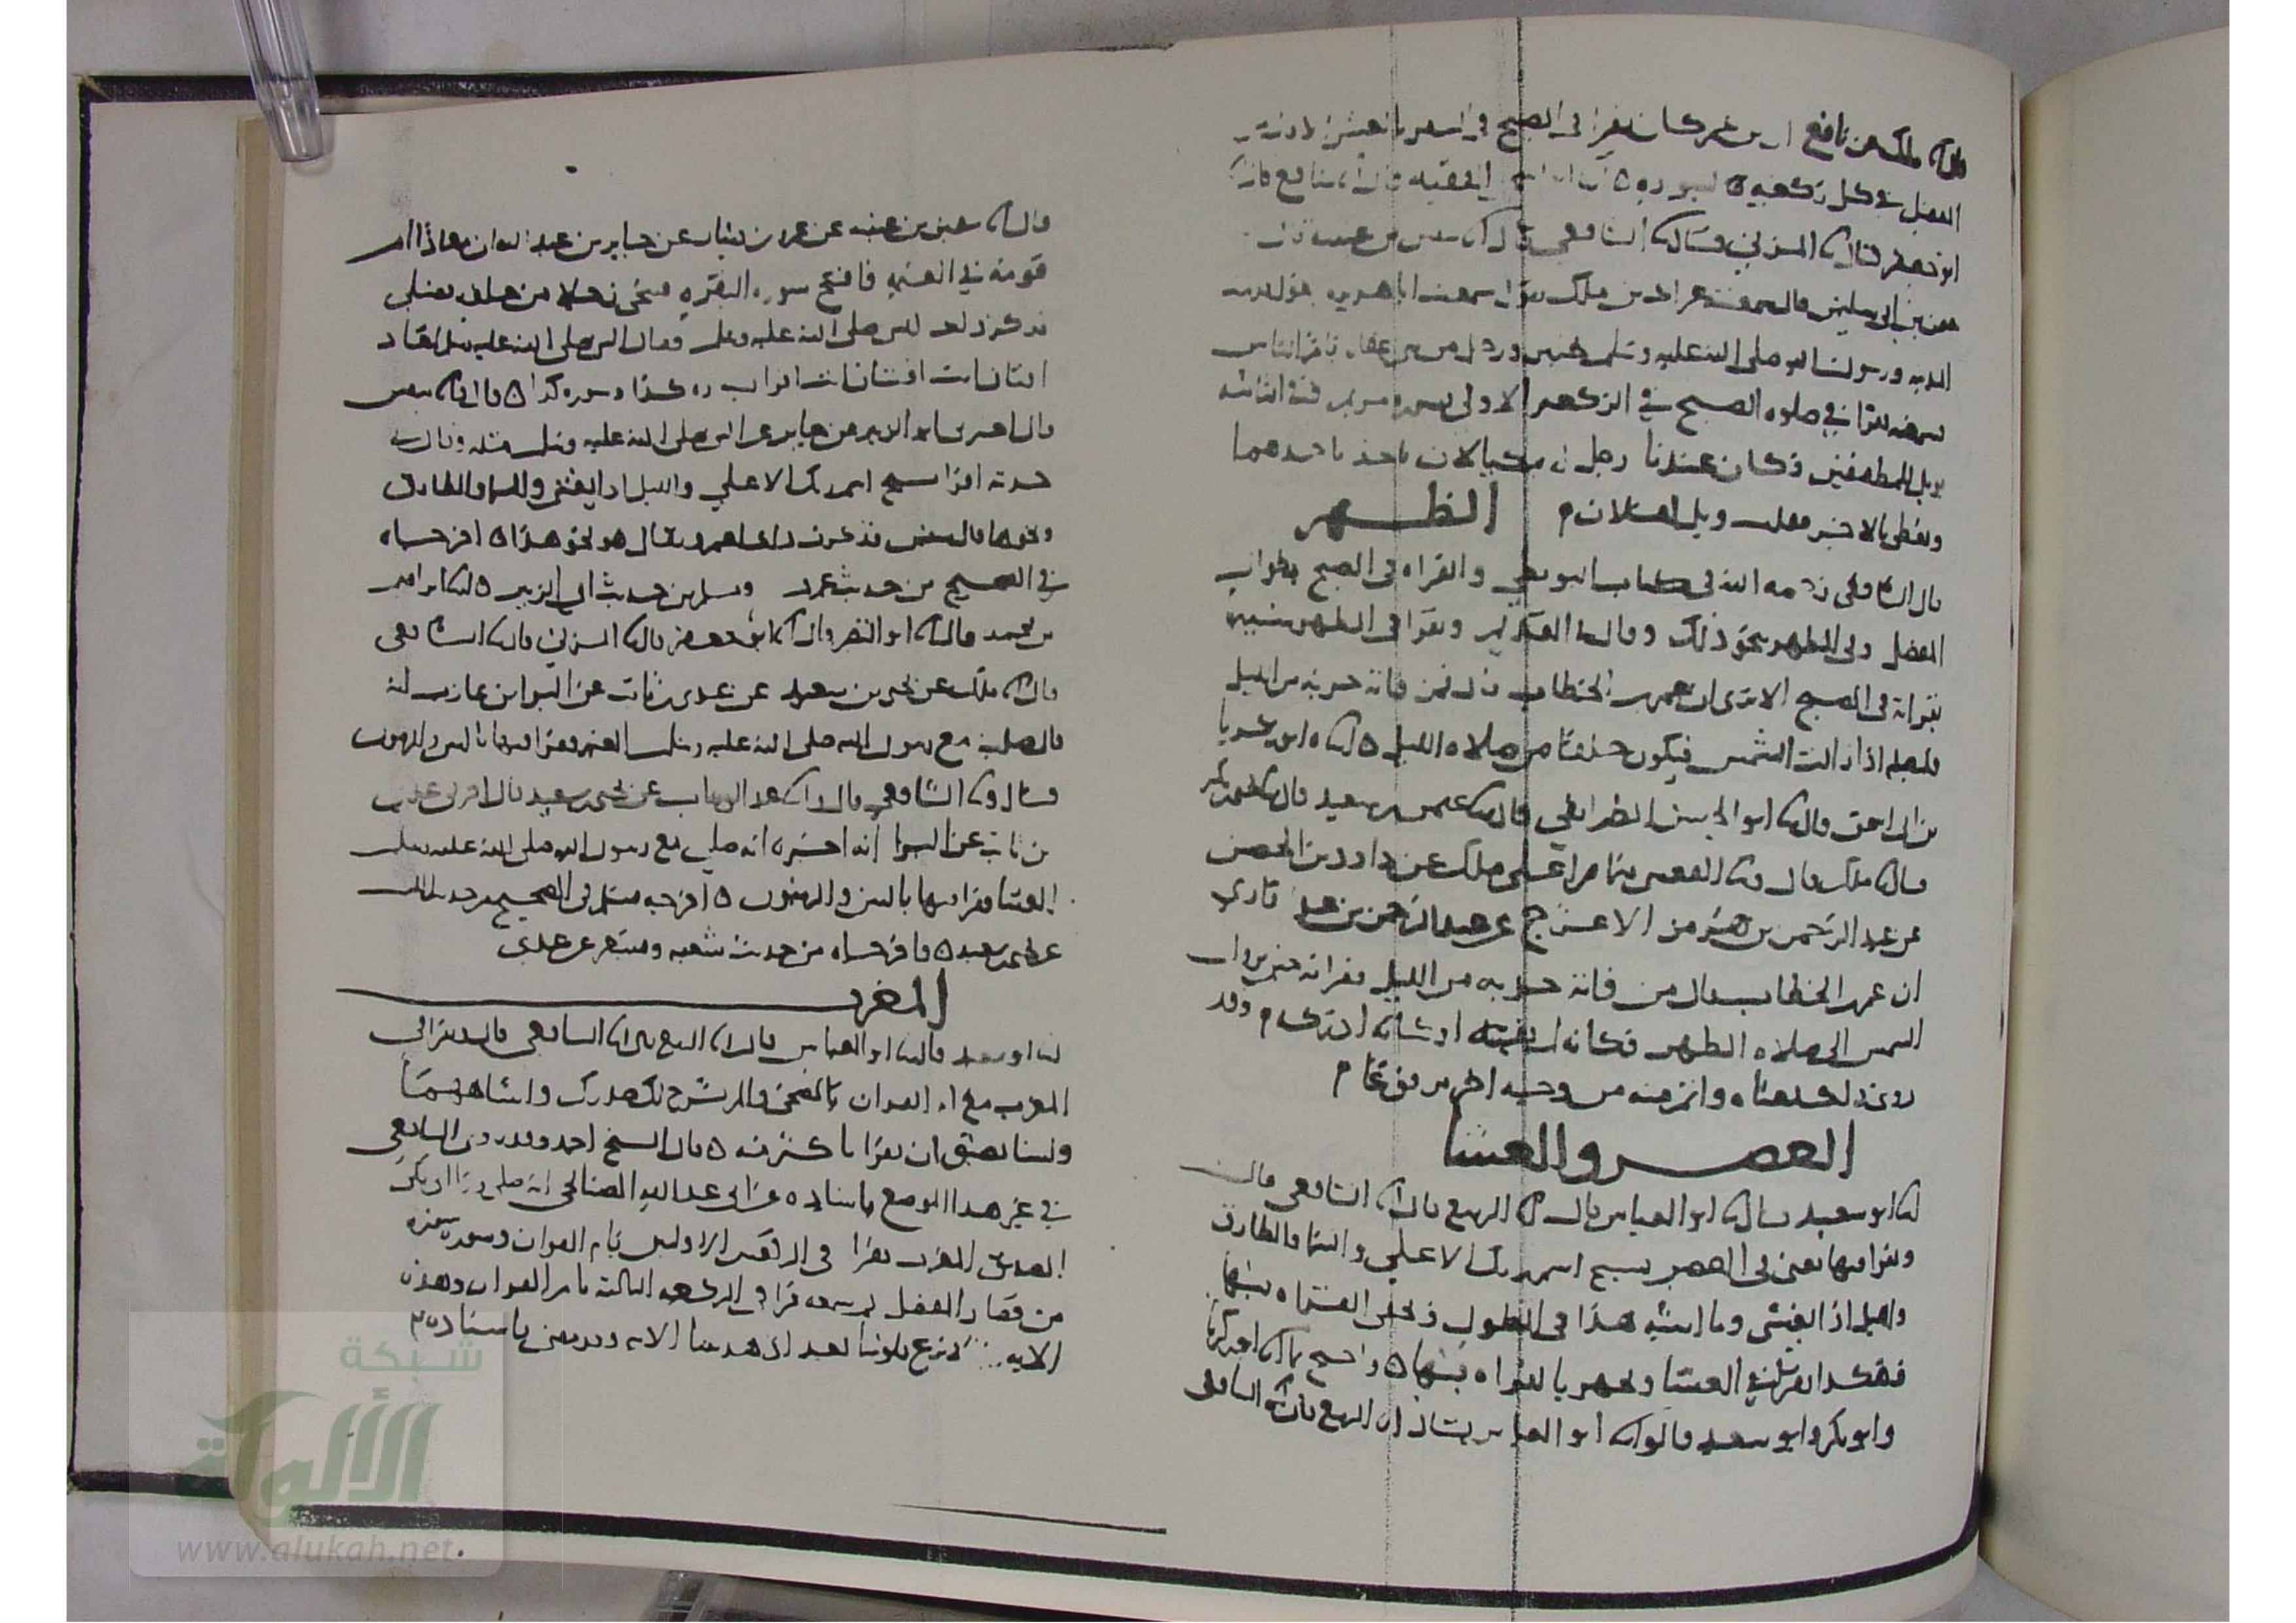 مالك عن نافع ان ابن عمر كان يقرا في الصبح في السفر بالعشر الاول من
المفصل في كل ركعة سورة ه الفقيه قال نا شافع قال نا
ابو جعفر قال نا المزني قال نا الشافعي قال نا سفين بن عيينه قال
عثمن بن ابي سليمن قال سمعت عراك بن ملك يقول سمعت ابا هريره يقول قدمت
المدينه ورسول الله صلى الله عليه وسلم بخيبر ورجل من بني غفار يؤم الناس
فسمعته يقرا في صلوه الصبح في الركعه الاولى بسوره مريم وفي الثانيه
بويل للمطففين وكان عندنا رجل له مكيالان ياخذ باحدهما
ويعطي بالاخر فقلت ويل لفلان م الظهر
قال الشافعي رحمه الله في كتاب البويطي والقراه في الصبح بطوال
المفصل وفي الظهر نحو ذلك وقال في القديم ويقرا في الظهر شبيها
بقراته في الصبح الا ترى ان عمر بن الخطاب قال فمن فاته حزبه من الليل
فليصله اذا زالت الشمس فيكون خلفا من صلاه الليل ه اخبرناه ابو زكريا
بن ابي اسحق قال نا ابو الحسن الطرايفي قال نا عثمن بن سعيد قال نا يحيى بن بكير
قال نا ملك قال ونا القعنبي فيما قرا على ملك عن داود بن الحصين
عن عبد الرحمن بن هرمز الاعرج عن عبد الرحمن بن عبد القاري
ان عمر بن الخطاب قال من فاته حزبه من الليل فقراه حين تزول
الشمس الى صلاه الظهر فكانه لم يفته او كانه ادركه م وقد
روي ذلك معناه واتم منه من وجه اخر مرفوعا م
العصر والعشا
نا ابو سعيد قال نا ابو العباس قال نا الربيع قال نا الشافعي قال
ويقرا فيها يعني في العصر بسبح اسم ربك الاعلى والسما والطارق
والليل اذا يغشى وما اشبه هذا في الطول ونحكي العشاء بشبهها
فهكذا يقرا في العشا ويجهر بالقراه فيها ه واحتج بما نا ابو زكريا
وابو بكر وابو سعيد قالوا نا ابو العباس قال نا الربيع قال نا الشافعي
قال نا سفين بن عيينه عن عمرو بن دينار عن جابر بن عبد الله ان معاذا ام
قومه في العتمه فافتتح سوره البقره فتنحى رجل من خلفه فصلى
فذكر ذلك للنبي صلى الله عليه وسلم فقال النبي صلى الله عليه وسلم لمعاذ
افتان انت افتان انت اقرا بسوره كذا وسوره كذا ه قال نا سفين
قال نا ابو الزبير عن جابر عن النبي صلى الله عليه وسلم مثله وقال في
حديثه اقرا سبح اسم ربك الاعلى والليل اذا يغشى والسما والطارق
ونحوها قال سفين فذكرت ذلك لعمرو فقال هو نحو هذا ه اخرجاه
في الصحيح من حديث عمرو ومسلم من حديث ابي الزبير ه نا ابراهيم
بن محمد قال نا ابو النضر قال نا ابو جعفر قال نا المزني قال نا الشافعي
قال نا ملك عن يحيى بن سعيد عن عدي بن ثابت عن البرا بن عازب انه
قال صليت مع رسول الله صلى الله عليه وسلم العتمه فقرا فيها بالتين والزيتون
قال ونا الشافعي قال نا عبد الوهاب عن يحيى بن سعيد قال اخبرني عدي
بن ثابت عن البرا انه اخبره انه صلى مع رسول الله صلى الله عليه وسلم
العشا فقرا فيها بالتين والزيتون ه اخرجه مسلم في الصحيح من حديث الليث
عن يحيى بن سعيد ه واخرجاه من حديث شعبه ومسعر عن عدي
المغرب
نا ابو سعيد قال نا ابو العباس قال نا الربيع قال نا الشافعي قال ويقرا في
المغرب مع ام القران بالضحى والم نشرح لك صدرك واشباههما
ولسنا نضيق ان يقرا باكثر منه ه قال الشيخ احمد وقد روى الشافعي
في غير هذا الموضع باسناده عن ابي عبد الله الصنابحي انه صلى ورا ابي بكر
الصديق المغرب فقرا في الركعتين الاوليين بام القران وسوره سوره
من قصار المفصل ثم سمعه قرا في الركعه الثالثه بام القران وهذه
الايه ربنا لا تزغ قلوبنا بعد اذ هديتنا الايه وقد مضى باسناده م
شبكة
الألوكة
www.alukah.net